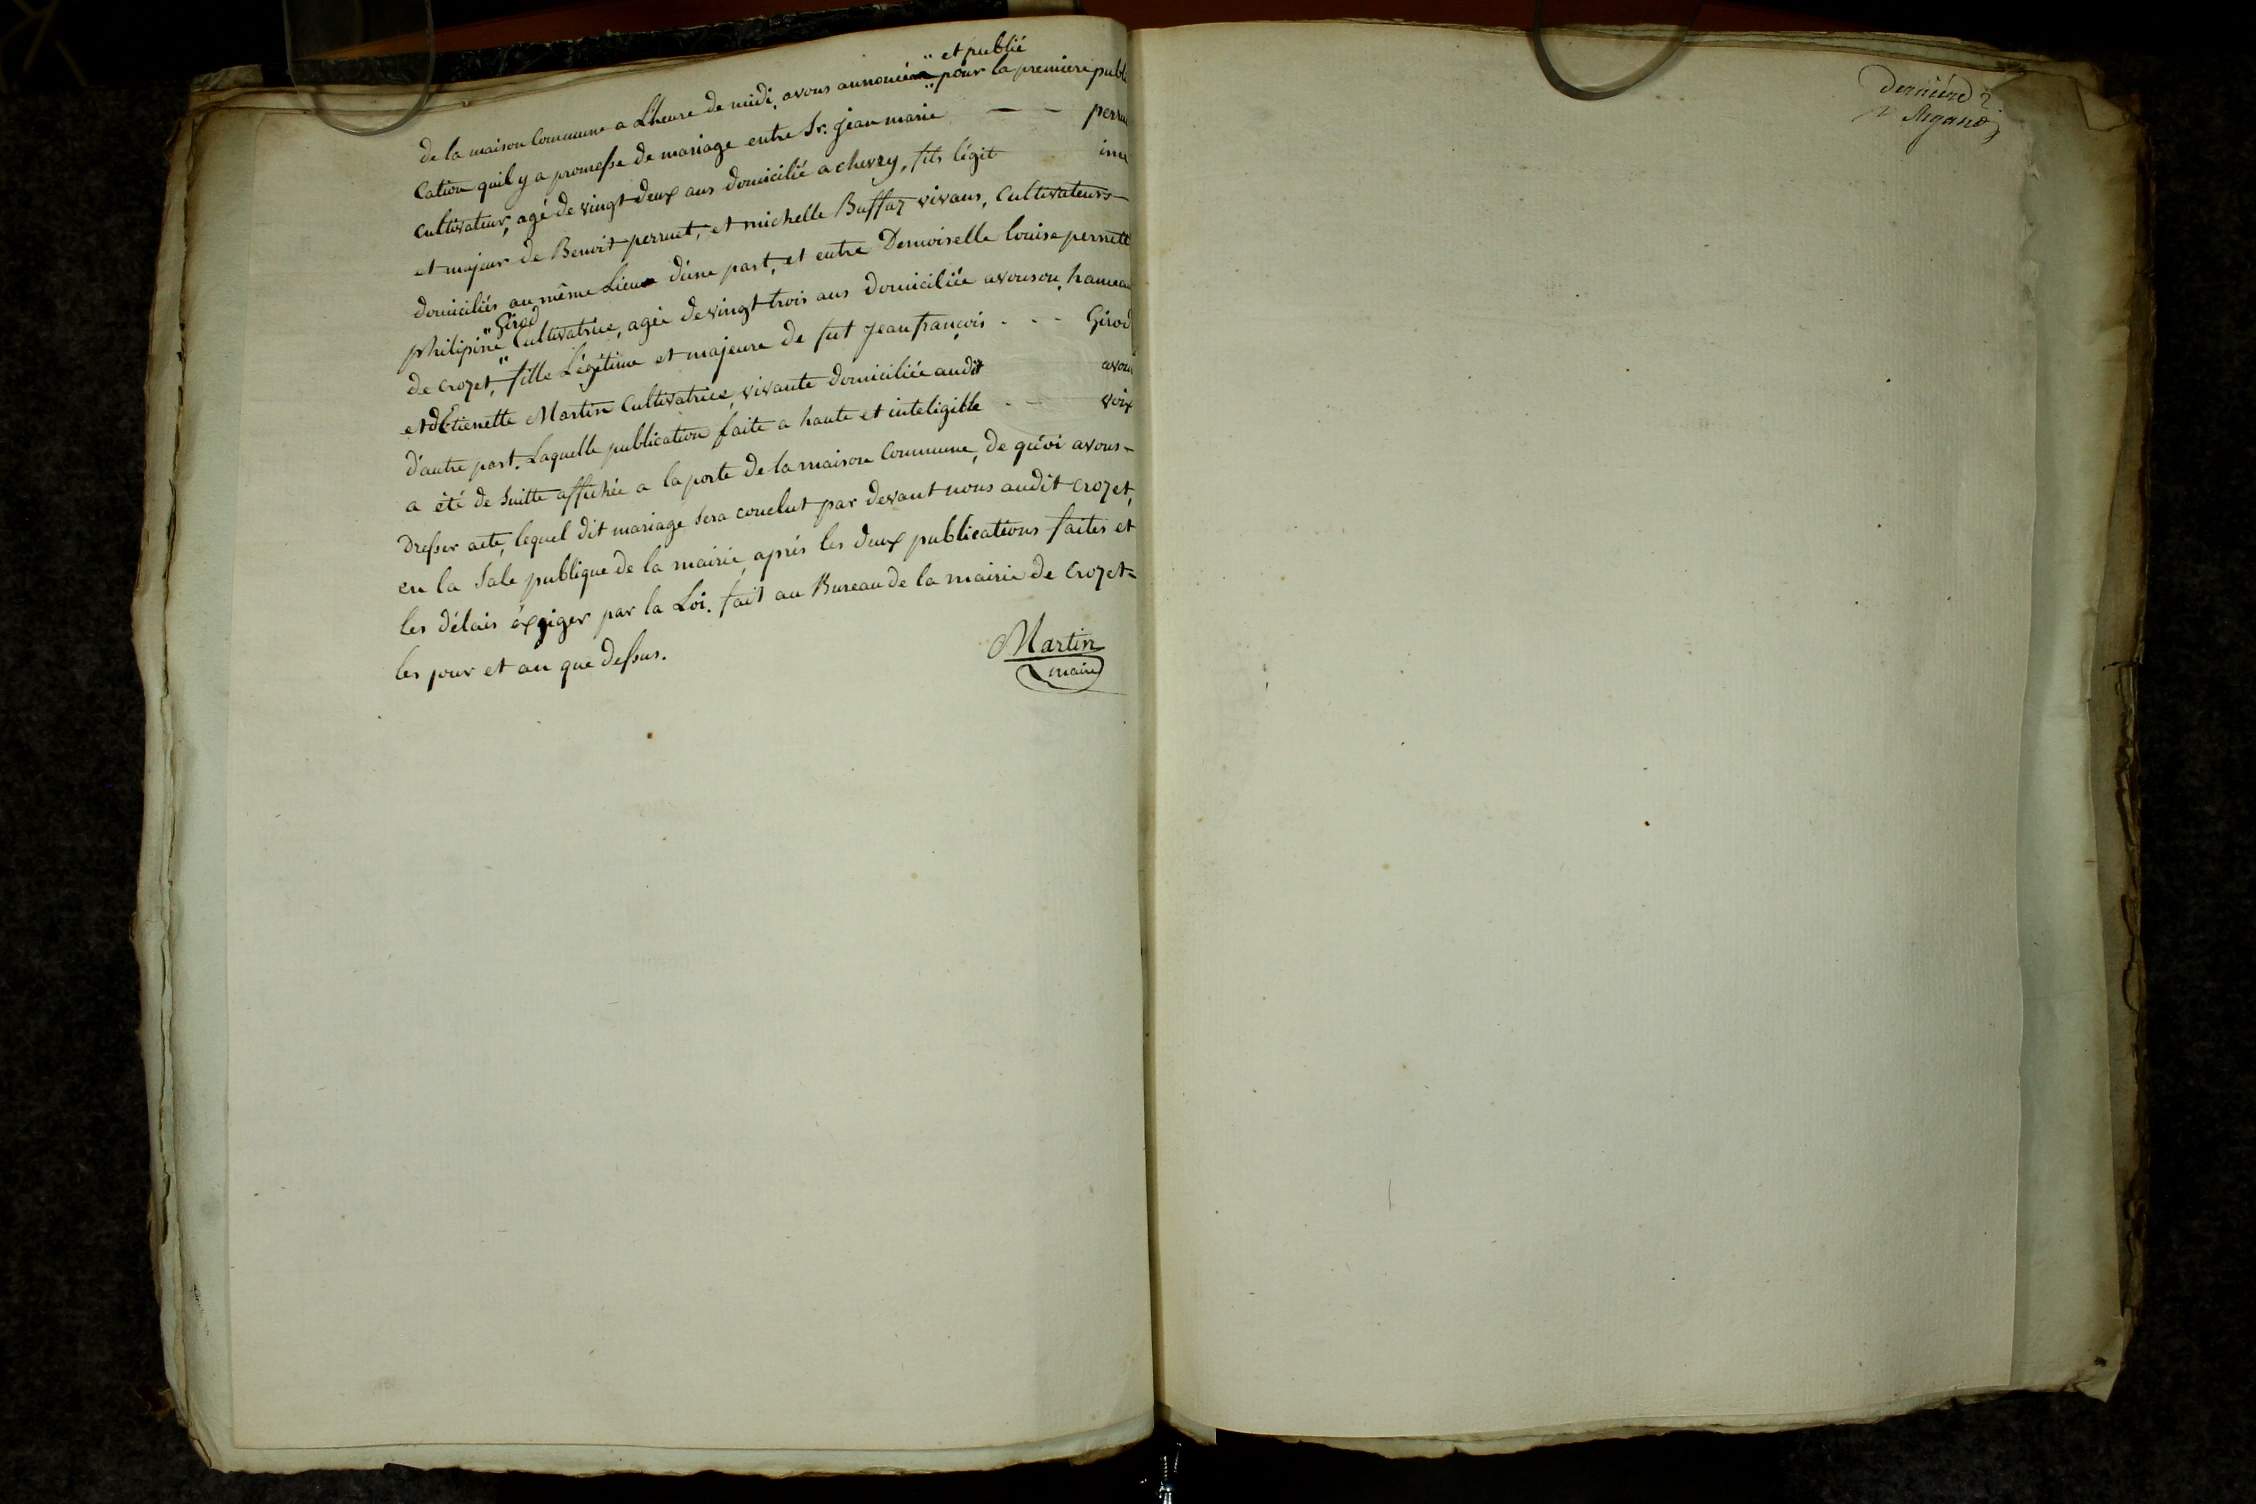 de la maison Commune a L'heure de midi, avons annoncéee " et publié " pour la premiere publi
cation qu'il y a promesse de mariage entre Sr. jean marie — — perru
cultivateur, agé de vingt deux ans domicilié a chevry, fils légit ime
et majeur de Benoit perruet, et michelle Buffaz vivans, cultivateurs —
domiciliés au même Lieux d'une part, et entre Demoiselle louise pernett
philipine " Girod " Cultivatrice, agée de vingt trois ans domiciliée avouson, hameau
de crozet, fille Légitime et majeure de fut jean françois . - - Girod
et d'Etienette Martin Cultivatrice, vivante domiciliée audit avou
d'autre part. Laquelle publication faite a haute et inteligible . — voix
a été de suitte affichée a la porte de la maison Commune, de qu'oi avons -
dresser acte, lequel dit mariage sera conclut par devant nous audit crozet,
en la sale publique de la mairie, aprés les deux publications faites et
les délais éxgiger par la Loi. fait au Bureau de la mairie de crozet =
les jour et an que dessus.
Martin
maire
derniére